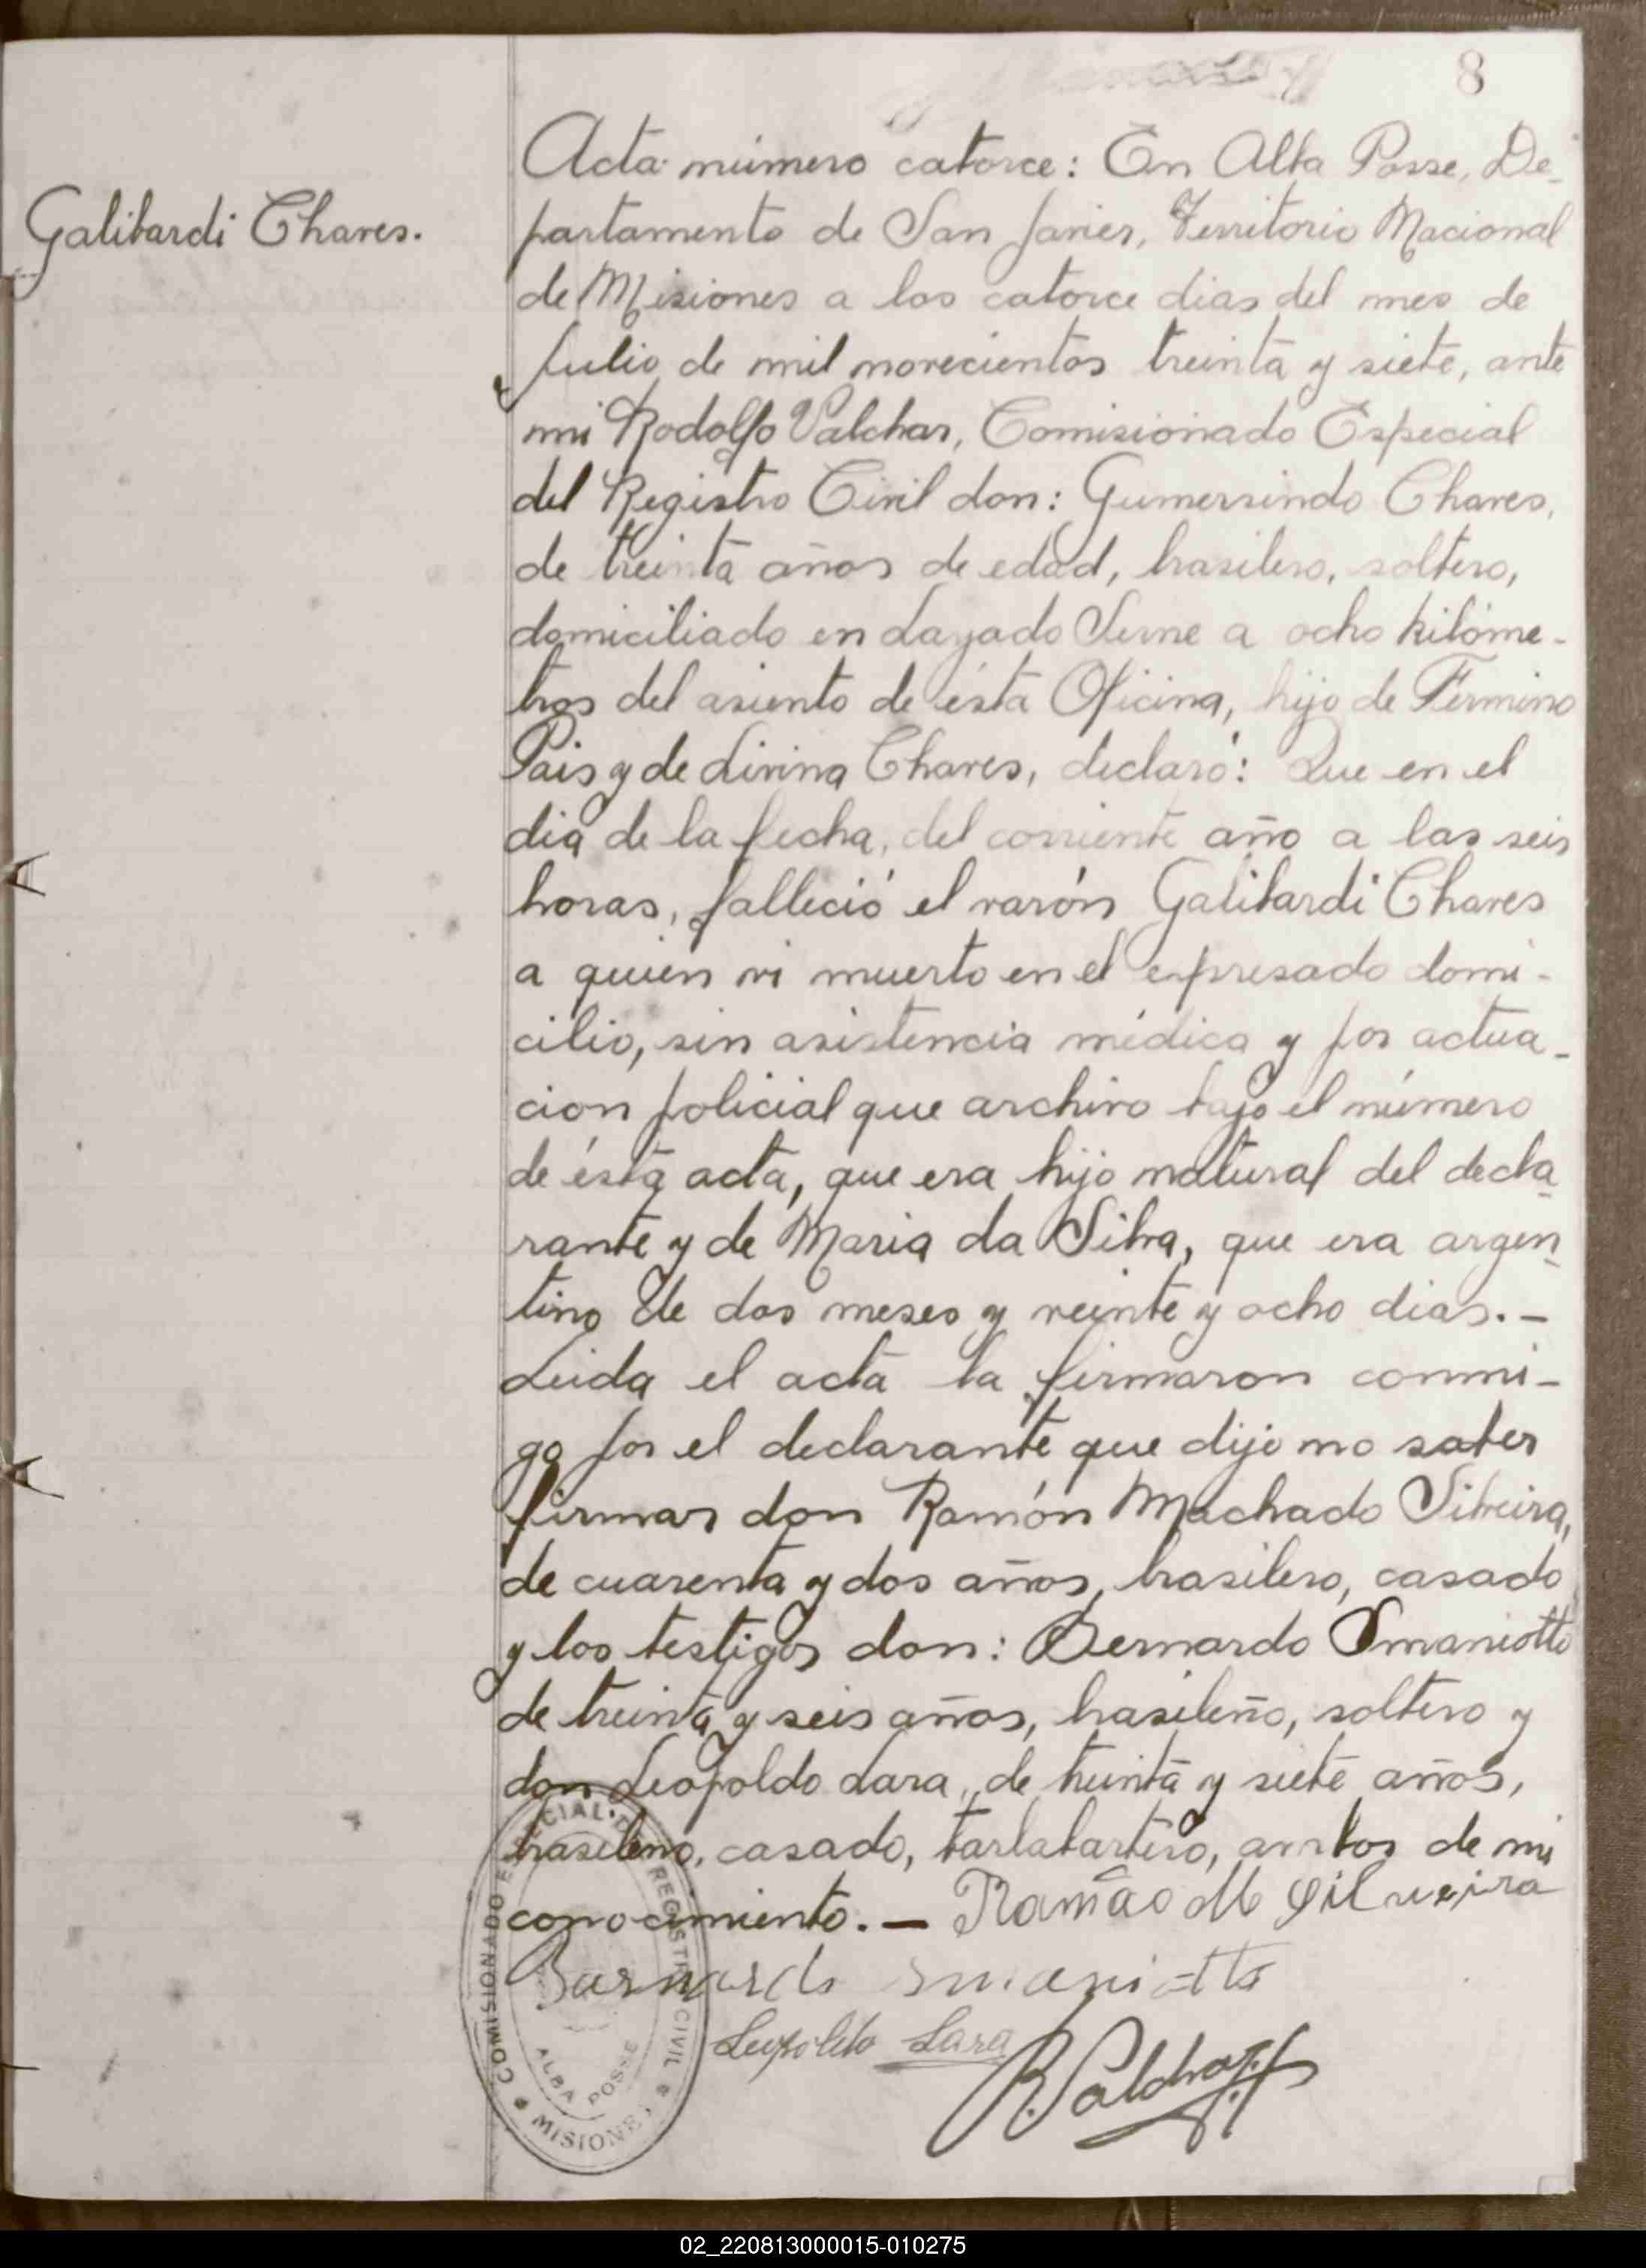 8
Galibardi Chaves.
Acta número catorce: En Alba Posse, De-
partamento de San Javier, Territorio Nacional
de Misiones a los catorce dias del mes de
Julio de mil novecientos treinta y siete, ante
mi Rodolfo Valchar, Comisionado Especial
del Registro Civil don: Gumersindo Chaves,
de treinta años de edad, brasilero, soltero,
domiciliado en Layado Serne a ocho kilóme-
tros del asiento de ésta Oficina, hijo de Fermino
Pais y de Livina Chaves, declaró: Que en el
dia de la fecha, del corriente año a las seis
horas, falleció el varón Galibardi Chaves
a quien vi muerto en el expresado domi-
cilio, sin asistencia médica y por actua-
cion policial que archivo bajo el número
de ésta acta, que era hijo natural del decla
rante y de Maria da Silva, que era argen
tino de dos meses y veinte y ocho dias.-
Leida el acta la firmaron conmi-
go por el declarante que dijo no saber
firmar don Ramón Machado Silveira,
de cuarenta y dos años, brasilero, casado
y los testigos don: Bernardo Smaniotto
de treinta y seis años, brasileño, soltero y
don Leopoldo Lara, de treinta y siete años,
brasileño, casado, ambos de mi
conocimiento.- Ramão M Silveira
Bernardo Smaniotto
Leopoldo Lara
COMISIONADO ESPECIAL DEL REGISTRO CIVIL
ALBA POSSE
MISIONES
02_220813000015-010275